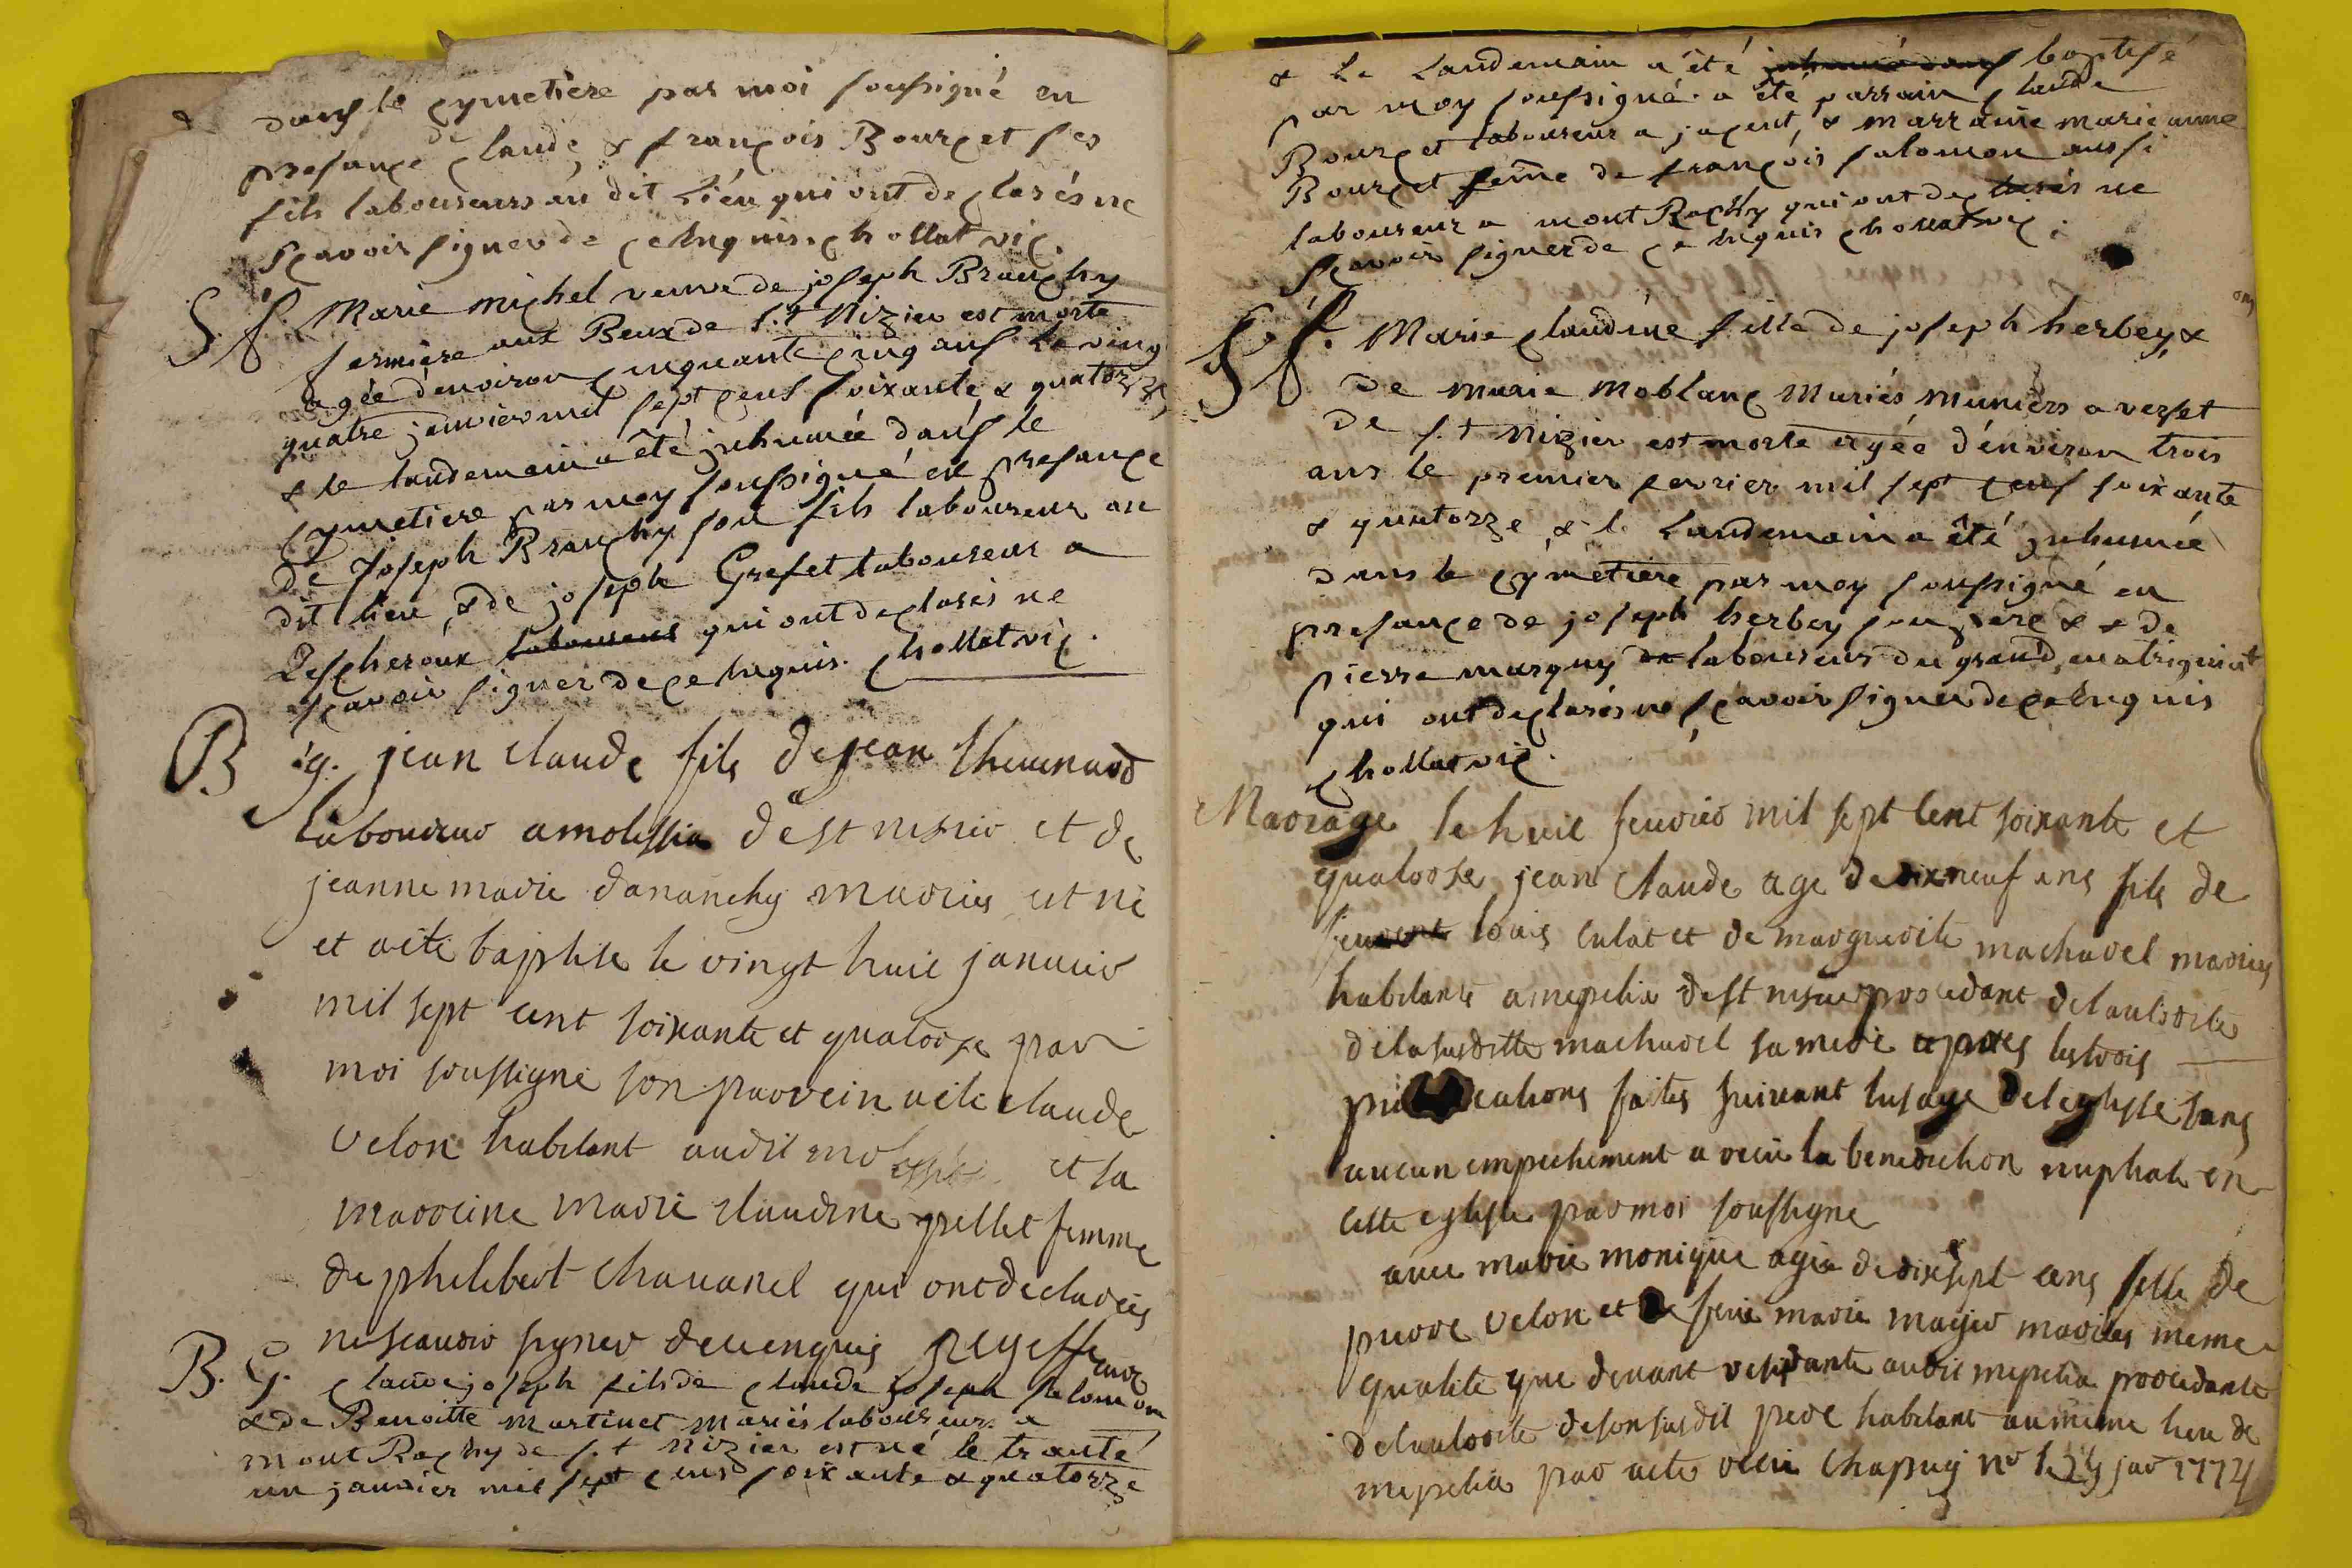 dans le cymetière par moi soussigné en
presance de claude, & françois Bourcet ses
fils laboureurs au dit Liéu qui ont declarés ne
sçavoir signer de ce enquis. chollat vic.
S. f. Marie Michel veuve de joseph Branchy
fermière aux Beux de S.t Nizier est morte
agée d'environ cinquante cinq ans le ving
quatre janvier mil sept cens soixante & quatorze,
& le landemain a êté inhumée dans le
cymetiere par moy soussigné en presance
de Joseph Branchy son fils laboureur au
dit lieu, & de joseph Grefet laboureur a
Lescheroux laboureur qui ont declarés ne
sçavoir signer de ce enquis. chollat vic.
B g. jean claude fils de jean thevenard
laboureur a molissia de st nisier et de
jeanne marie dananchy maries est né
et a eté baptise le vingt huit janvier
mil sept cent soixante et quatorze par
moi soussigne son parrein a eté claude
velon habitant audit et sa
marreine marie claudine pellet femme
de philibert chavanel qui ont declarés
ne scavoir signer de ce enquis
B. G. claude joseph fils de claude joseph salomon
& de Benoitte martinet mariés laboureurs a
mont Rachy de S.t Nizier est né le trante
un janvier mil sept cens soixante & quatorze
& le Landemain a êté inhumé dans baptisé
par moy soussigné. a êté parrain claude
Bourcet laboureur a jacent, & marraine marie anne
Bourcet feme de françois salomon aussi
laboureur a mont Rachy qui ont declarés ne
sçavoir signer de ce enquis chollat vic.
S. f. Marie claudine fille de joseph herbey, &
de marie Moblanc Mariés muniers a verset
de S.t Nizier est morte agée d'environ trois
ans le premier fevrier mil sept cens soixante
& quatorze & le Landemain a êté inhumée
dans le cymetière par moy soussigné en
presance de joseph herbey son père & de
pierre marguy laboureur du grand
qui ont declarés ne sçavoir signer de ce enquis
chollat vic.
Mariage le huit fevrier mil sept cent soixante et
quatorse jean claude age de dix neuf ans fils de
louis culat et de marguerite machurel maries
habitants a mepelia de st nisier procedant de lautorite
de la susditte machurel sa mere apres les trois
publications faites suivant lusage de leglisse sans
aucun empechement a recu la benediction nuptiale en
cette eglisse par moi soussigne
avec marie monique agée de dix sept ans fille de
pierre velon et de feue marie mayer maries meme
qualite que devant residante audit mepelia procedante
de lautorite de son susdit pere habitant au meme lieu de
mepelia par acte recu Chapuy n.r le jav 1774